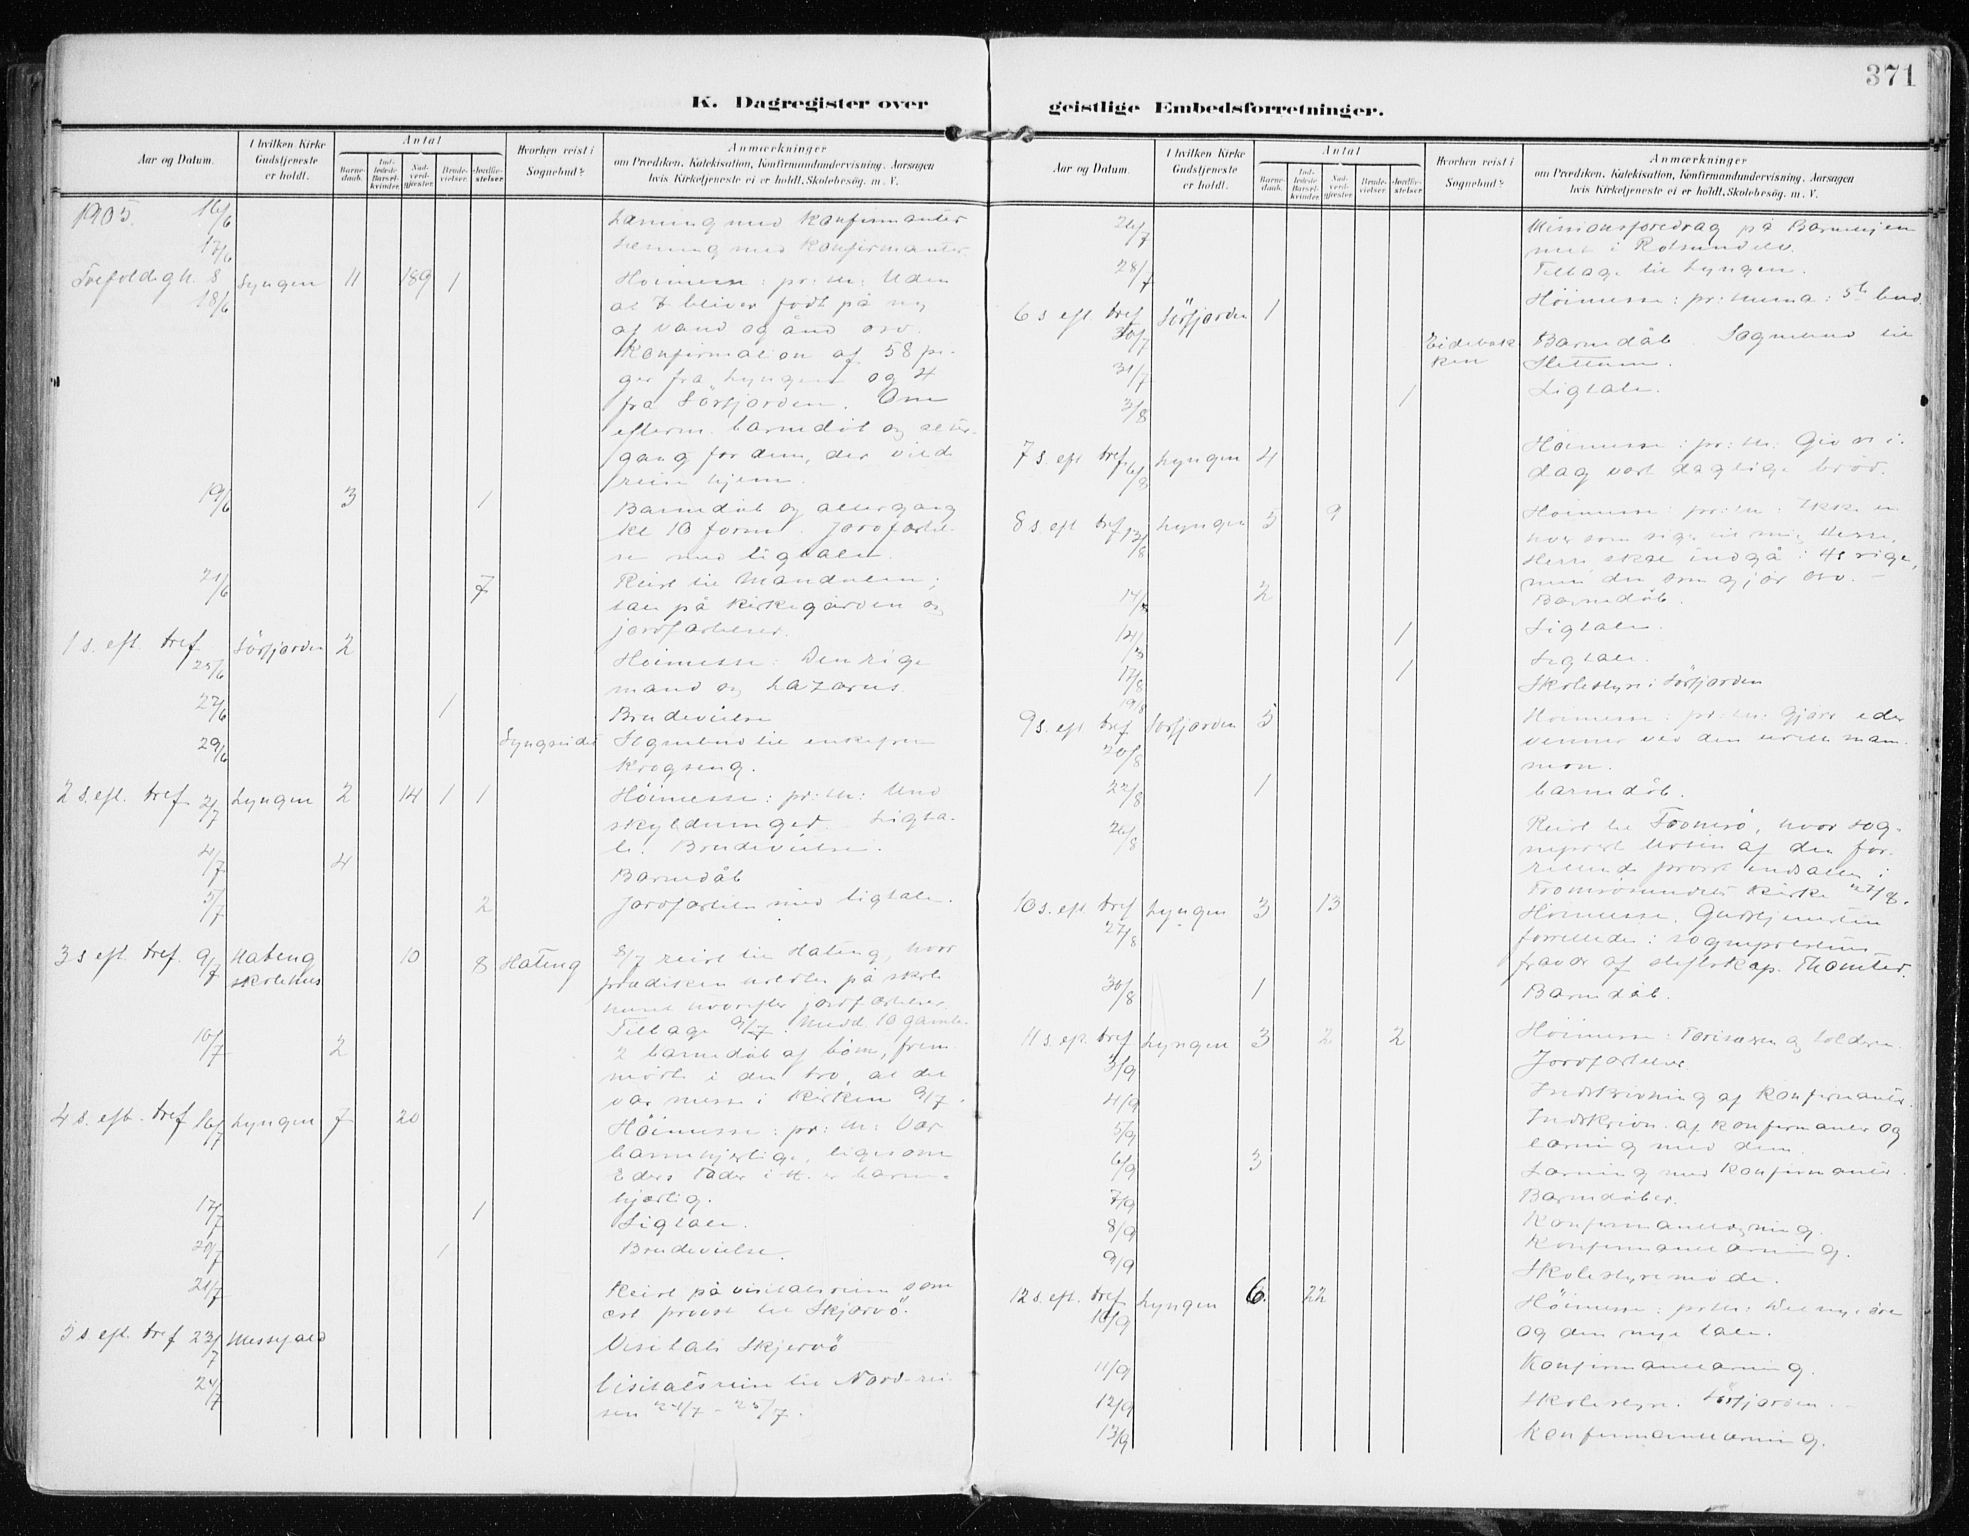 371
K. Dagregister over geistlige Embedsforretninger.
Aar og Datum.
I hvilken Kirke Gudstjeneste er holdt.
Antal
Barnedaab.
Indledede Barselkvinder.
Nadverdgjæster.
Brudevielser.
Jordfæstelser.
Hvorhen reist i Sognebud?
Anmærkninger
om Prædiken, Katekisation, Konfirmandundervisning, Aarsagen
hvis Kirketjeneste ei er holdt, Skolebesøg. m. V.
1905. 16/6 Læsning med Konfirmanter
17/6 Læsning med Konfirmanter
18/6 Lyngen 11 189 1 Höimesse: pr: m: Uden
at I bliver født på ny
af vand og ånd osv.
Konfirmation af 58 pi-
ger fra Lyngen og 4
fra Sörfjorden. Om
efterm. barnedåb og alter-
gang for dem, der vilde
reise hjem.
19/6 3 1 Barnedåb og altergang
kl 10 form. Jordfæstel-
se med ligtale.
21/6 7 Reist til Mandalen;
tale på kirkegården og
jordfæstelser.
1 s. eft. tref 25/6 Sörfjorden 2 Höimesse: Den rige
mand og Lazarus.
27/6 1 Brudevielse
29/6 Lyngseidet Sognebud til enkefru
Krogseng.
2 s. eft. tref 2/7 Lyngen 2 14 1 1 Höimesse: pr: m: Und
skyldninger. Ligta-
le. Brudevielse.
4/7 4 Barnedåb
5/7 2 Jordfæstelse med ligtale.
3 s eft. tref. 9/7 Hateng skolehus 10 8 Hateng 8/7 reist til Hateng, hvor
prædiken holdtes på skole
huset hvorefter jordfæstelser.
Tilbage 9/7. Medd. 10 gamle.
10/7 2 2 barnedåb af børn, frem
mødt i den tro, at det
var messe i kirken 9/7.
4 s. eft. tref 16/7 Lyngen 7 20 Höimesse: pr: m: Vær
barmhjertige, ligesom
Eders Fader i H. er barm-
hjærtig.
17/7 1 Ligtale.
20/7 1 Brudevielse.
21/7 Reist på visitatsreise som
cst provst til Skjærvö.
5 s eft. tref 23/7 Messefald Visitats Skjervö
24/7 Visitatsreise til Nord-rei-
sen 24/7 - 25/7.
26/7 Missionsforedrag på Barnehjem
met i Rotsundelv.
28/7 Tilbage til Lyngen.
6 s eft tref 30/7 Sörfjorden 1 Höimesse: pr: 5te bud.
Eidebakken Barnedåb. Sognebud til
31/7 Slettum.
3/8 1 Ligtale.
7 s. eft tref 6/8 Lyngen 4 Höimesse: pr: m: Giv os i
dag vort daglige brød.
8 s. eft tref 13/8 Lyngen 5 9 Höimesse: pr: m: Ikke en
hver som siger til mig Herre,
Herre skal indgå i Hs rige,
men den som gjør osv. -
14/8 2 Barnedåb.
14/8 1 Ligtale.
17/8 1 Ligtale.
19/8 Skolestyre i Sörfjorden
9 s. eft tref 20/8 Sörfjorden 5 Höimesse: pr: m: Gjører eder
venner ved den uretf. mam-
mon.
22/8 1 barnedåb.
26/8 Reist til Tromsö, hvor sog-
den for-
rettende provst indsattes i
Tromsösundets kirke 27/8.
10 s. eft. tref 27/8 Lyngen 3 13 Höimesse. Gudstjenesten
forrettedes i sognepræstens
fravær af stiftskap.
30/8 1 Barnedåb.
11 s. ef. tref 3/9 Lyngen 3 2 2 Höimesse: Farisæeren og tolderen
Jordfæstelser
4/9 Indskrivning af Konfirmanter.
5/9 Indskrivn. af konfirmanter og
læsning med dem.
6/9 3 Læsning med Konfirmanter.
7/9 Barnedåber.
8/9 Konfirmantlæsning.
9/9 Konfirmantlæsning.
Skolestyremöde.
12 s. eft. tref 10/9 Lyngen 6. 22 Höimesse: pr: m: Det nye öre
og den nye tale.
11/9 Konfirmantlæsning.
12/9 Skolestyre. Sörfjorden.
13/9 Konfirmantlæsning.